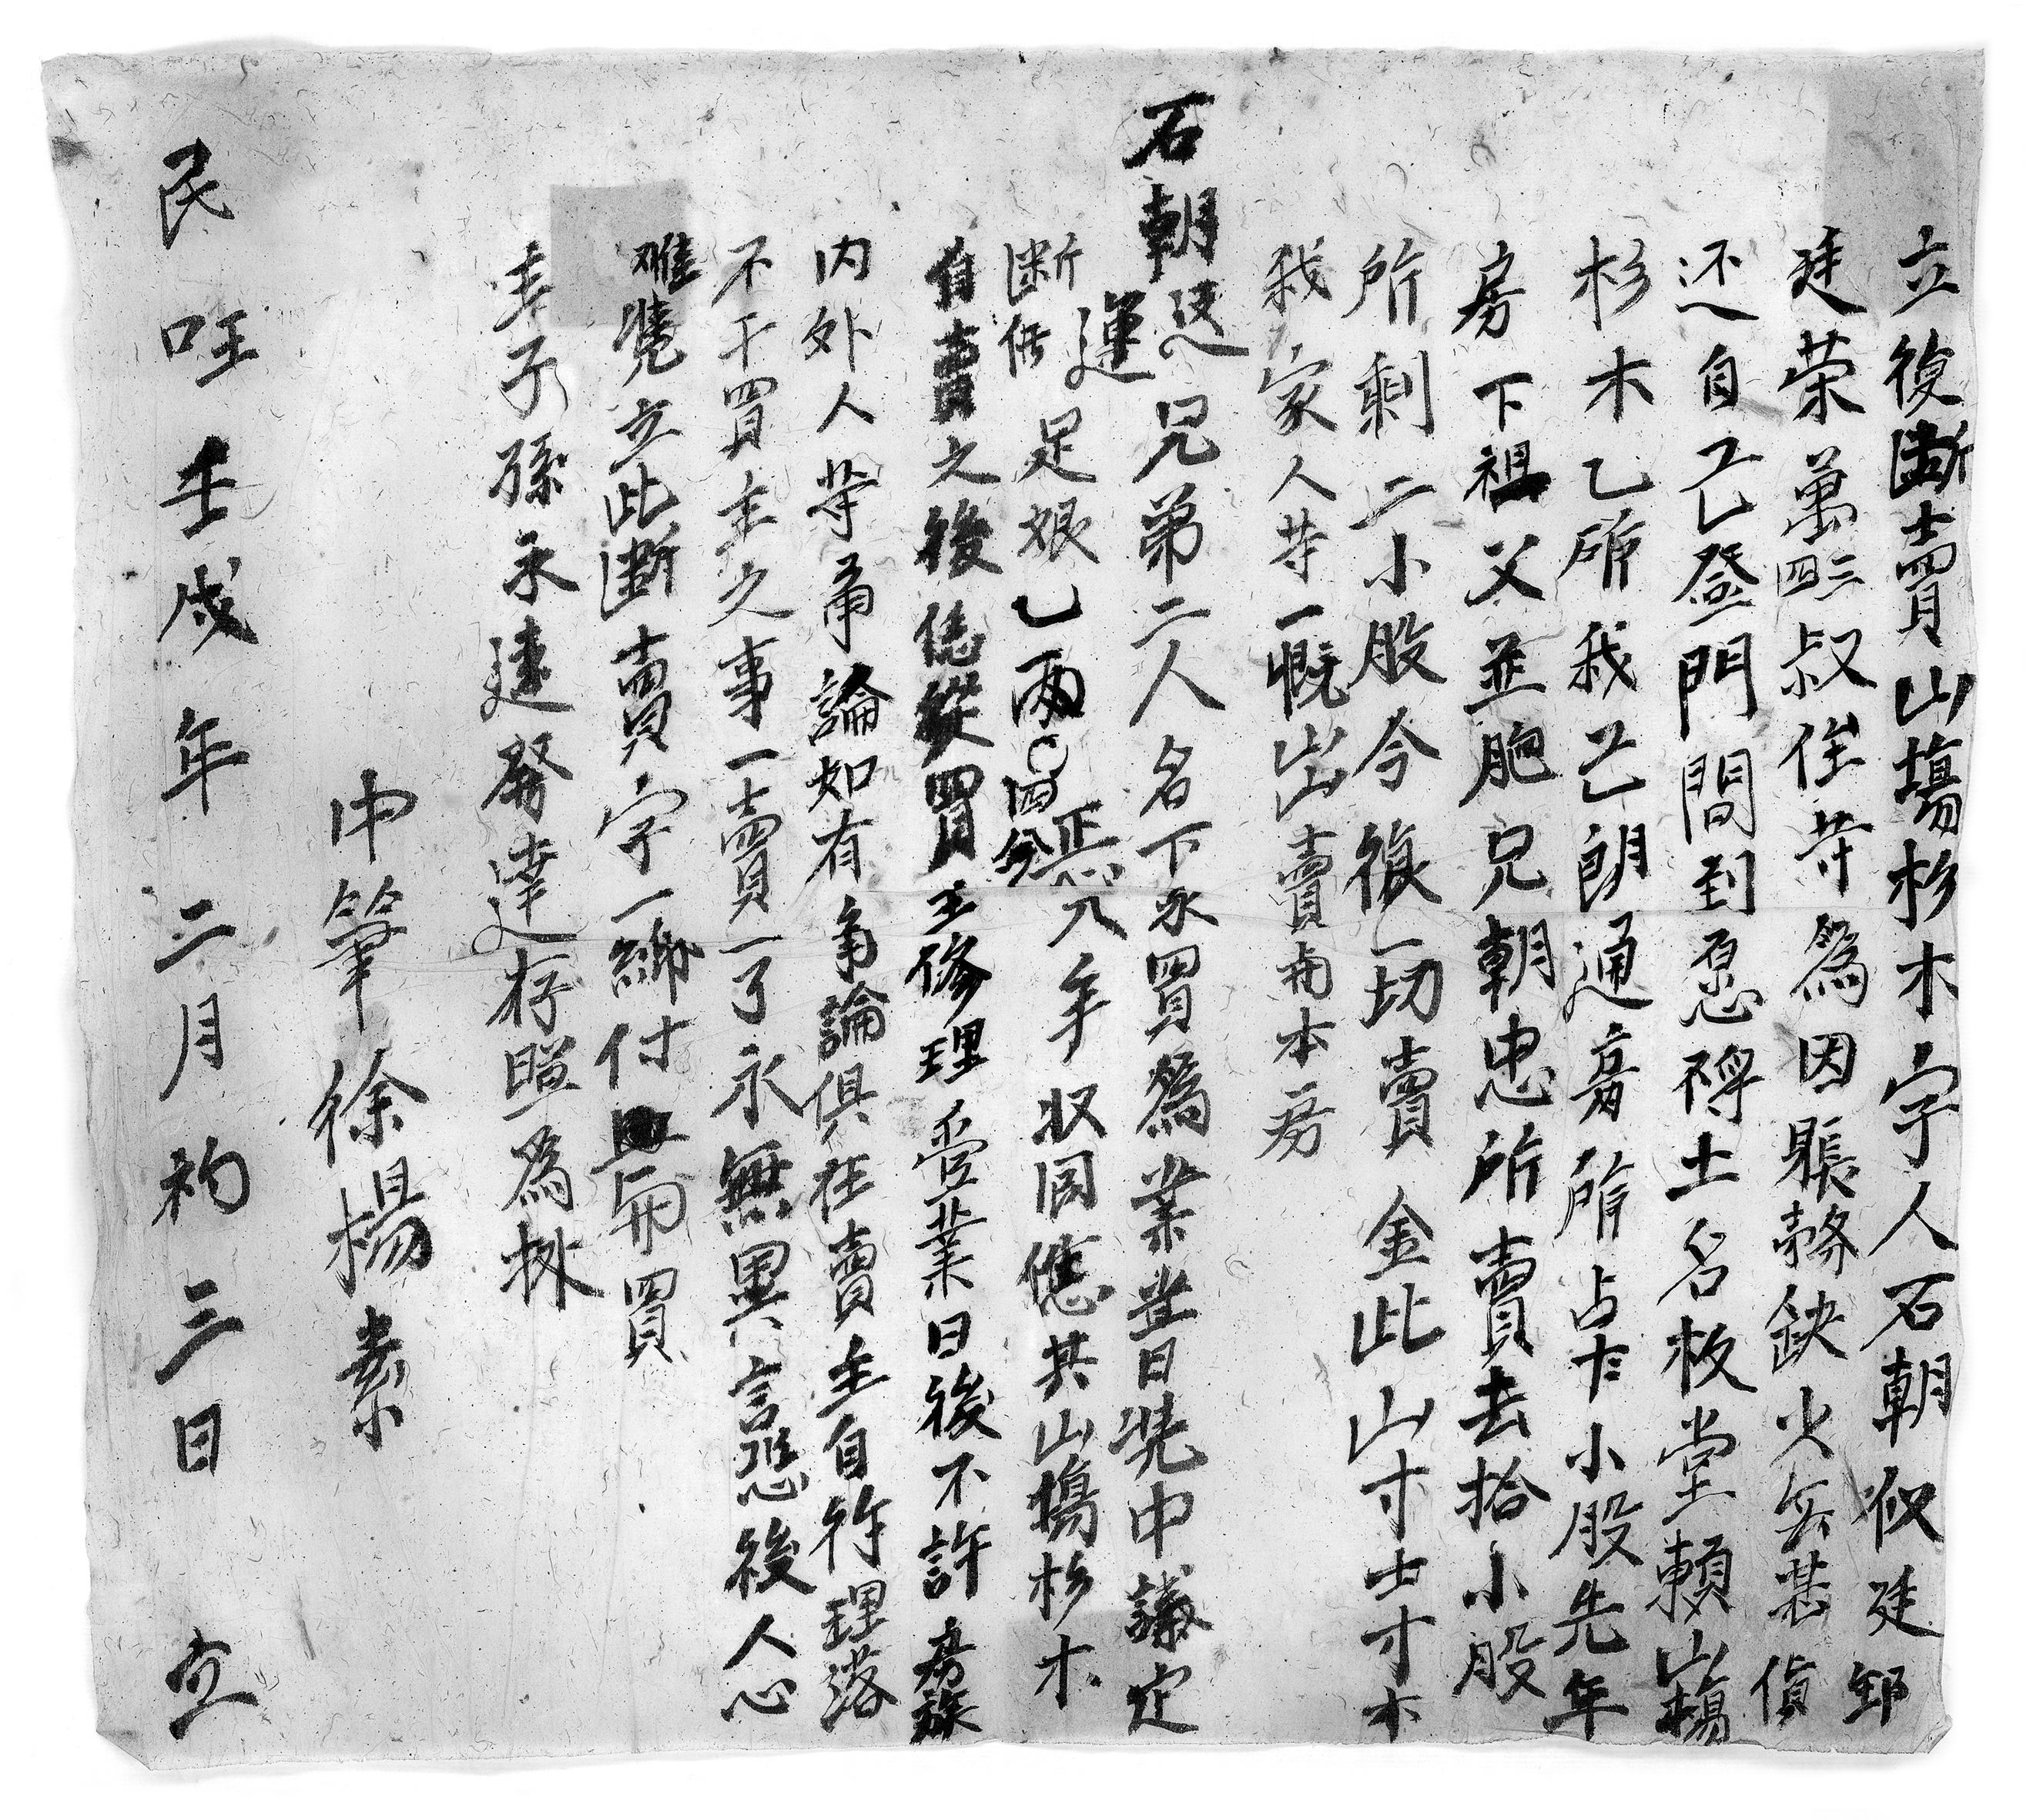 立復斷賣山場杉木字人石朝 廷
廷荣萬三四叔侄等為因賬務缺火無甚償
还自己登門問到 土名板堂賴山塲
杉木乙所我 朗通 所占 小股先年
房下祖父並胞兄朝忠所賣去拾小股
所剩二小股今復一切賣 金此山寸土寸木
我家人等一概出賣 本房
石朝 運 兄弟二人名下永買為業當日凭中議定
斷價足銀乙両〇四分正 入手收回應其山塲杉木
自賣之後 買主修理管業日後不許房族
内外人等爭論如有爭論俱在賣主自行理落
不干買主之事一賣一了永無異言恐後人心
難凴立此斷賣字一紙付與 買
主子孫永遠發達存照為据
中筆徐楊素
民囯壬戌年二月初三日 立